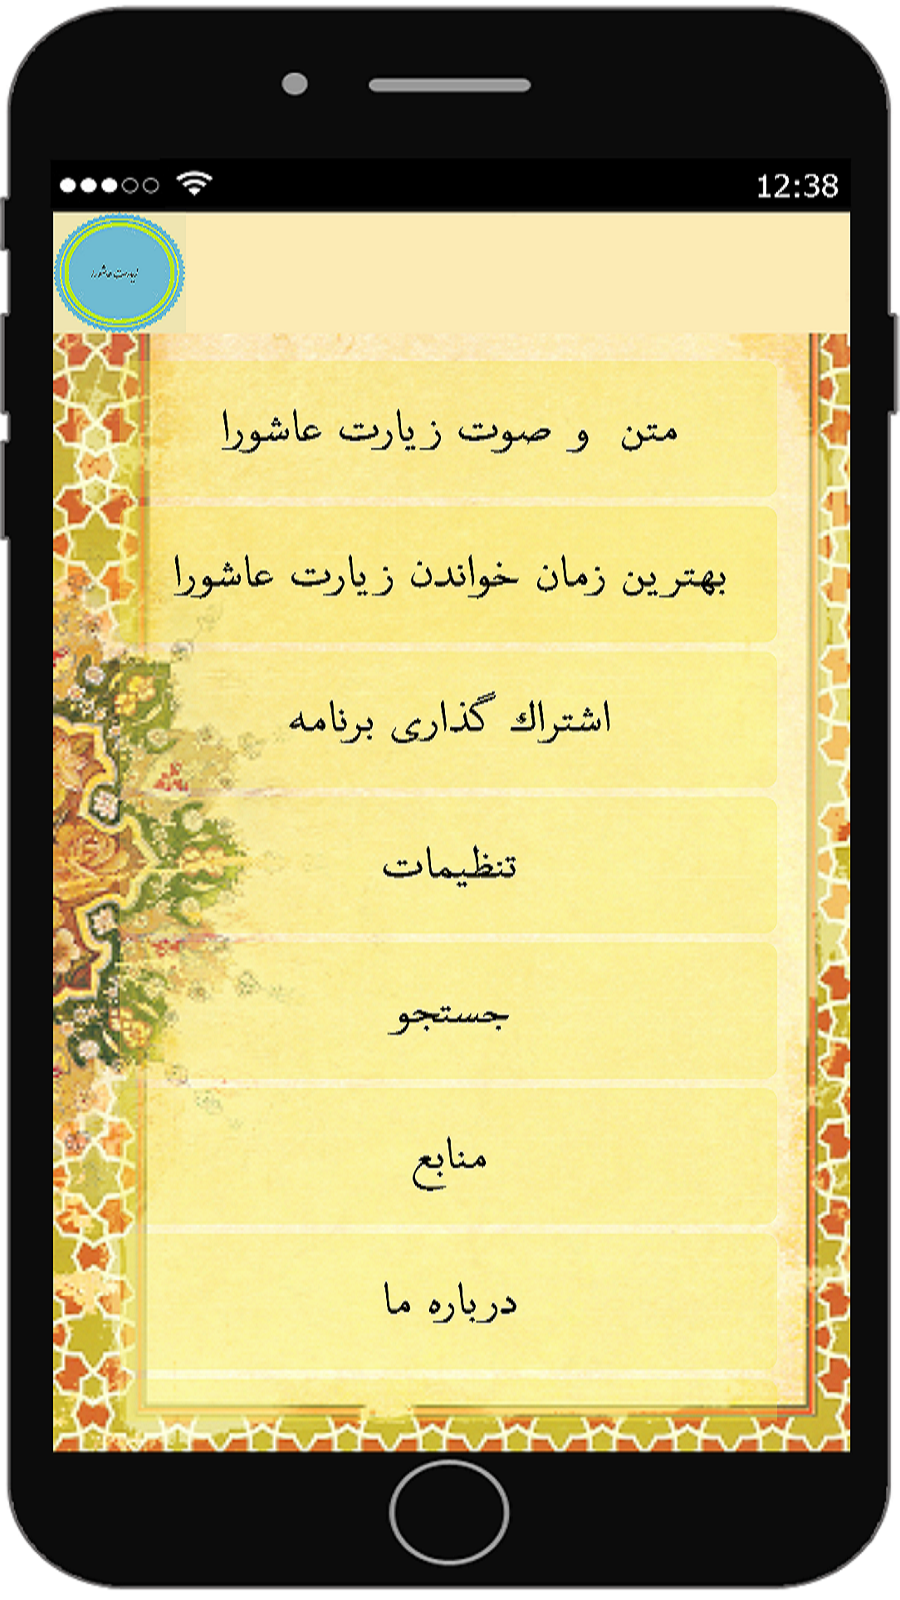 12:38
زیارت عاشورا
متن و صوت زیارت عاشورا
بهترین زمان خواندن زیارت عاشورا
اشتراك گذاری برنامه
تنظیمات
جستجو
منابع
درباره ما